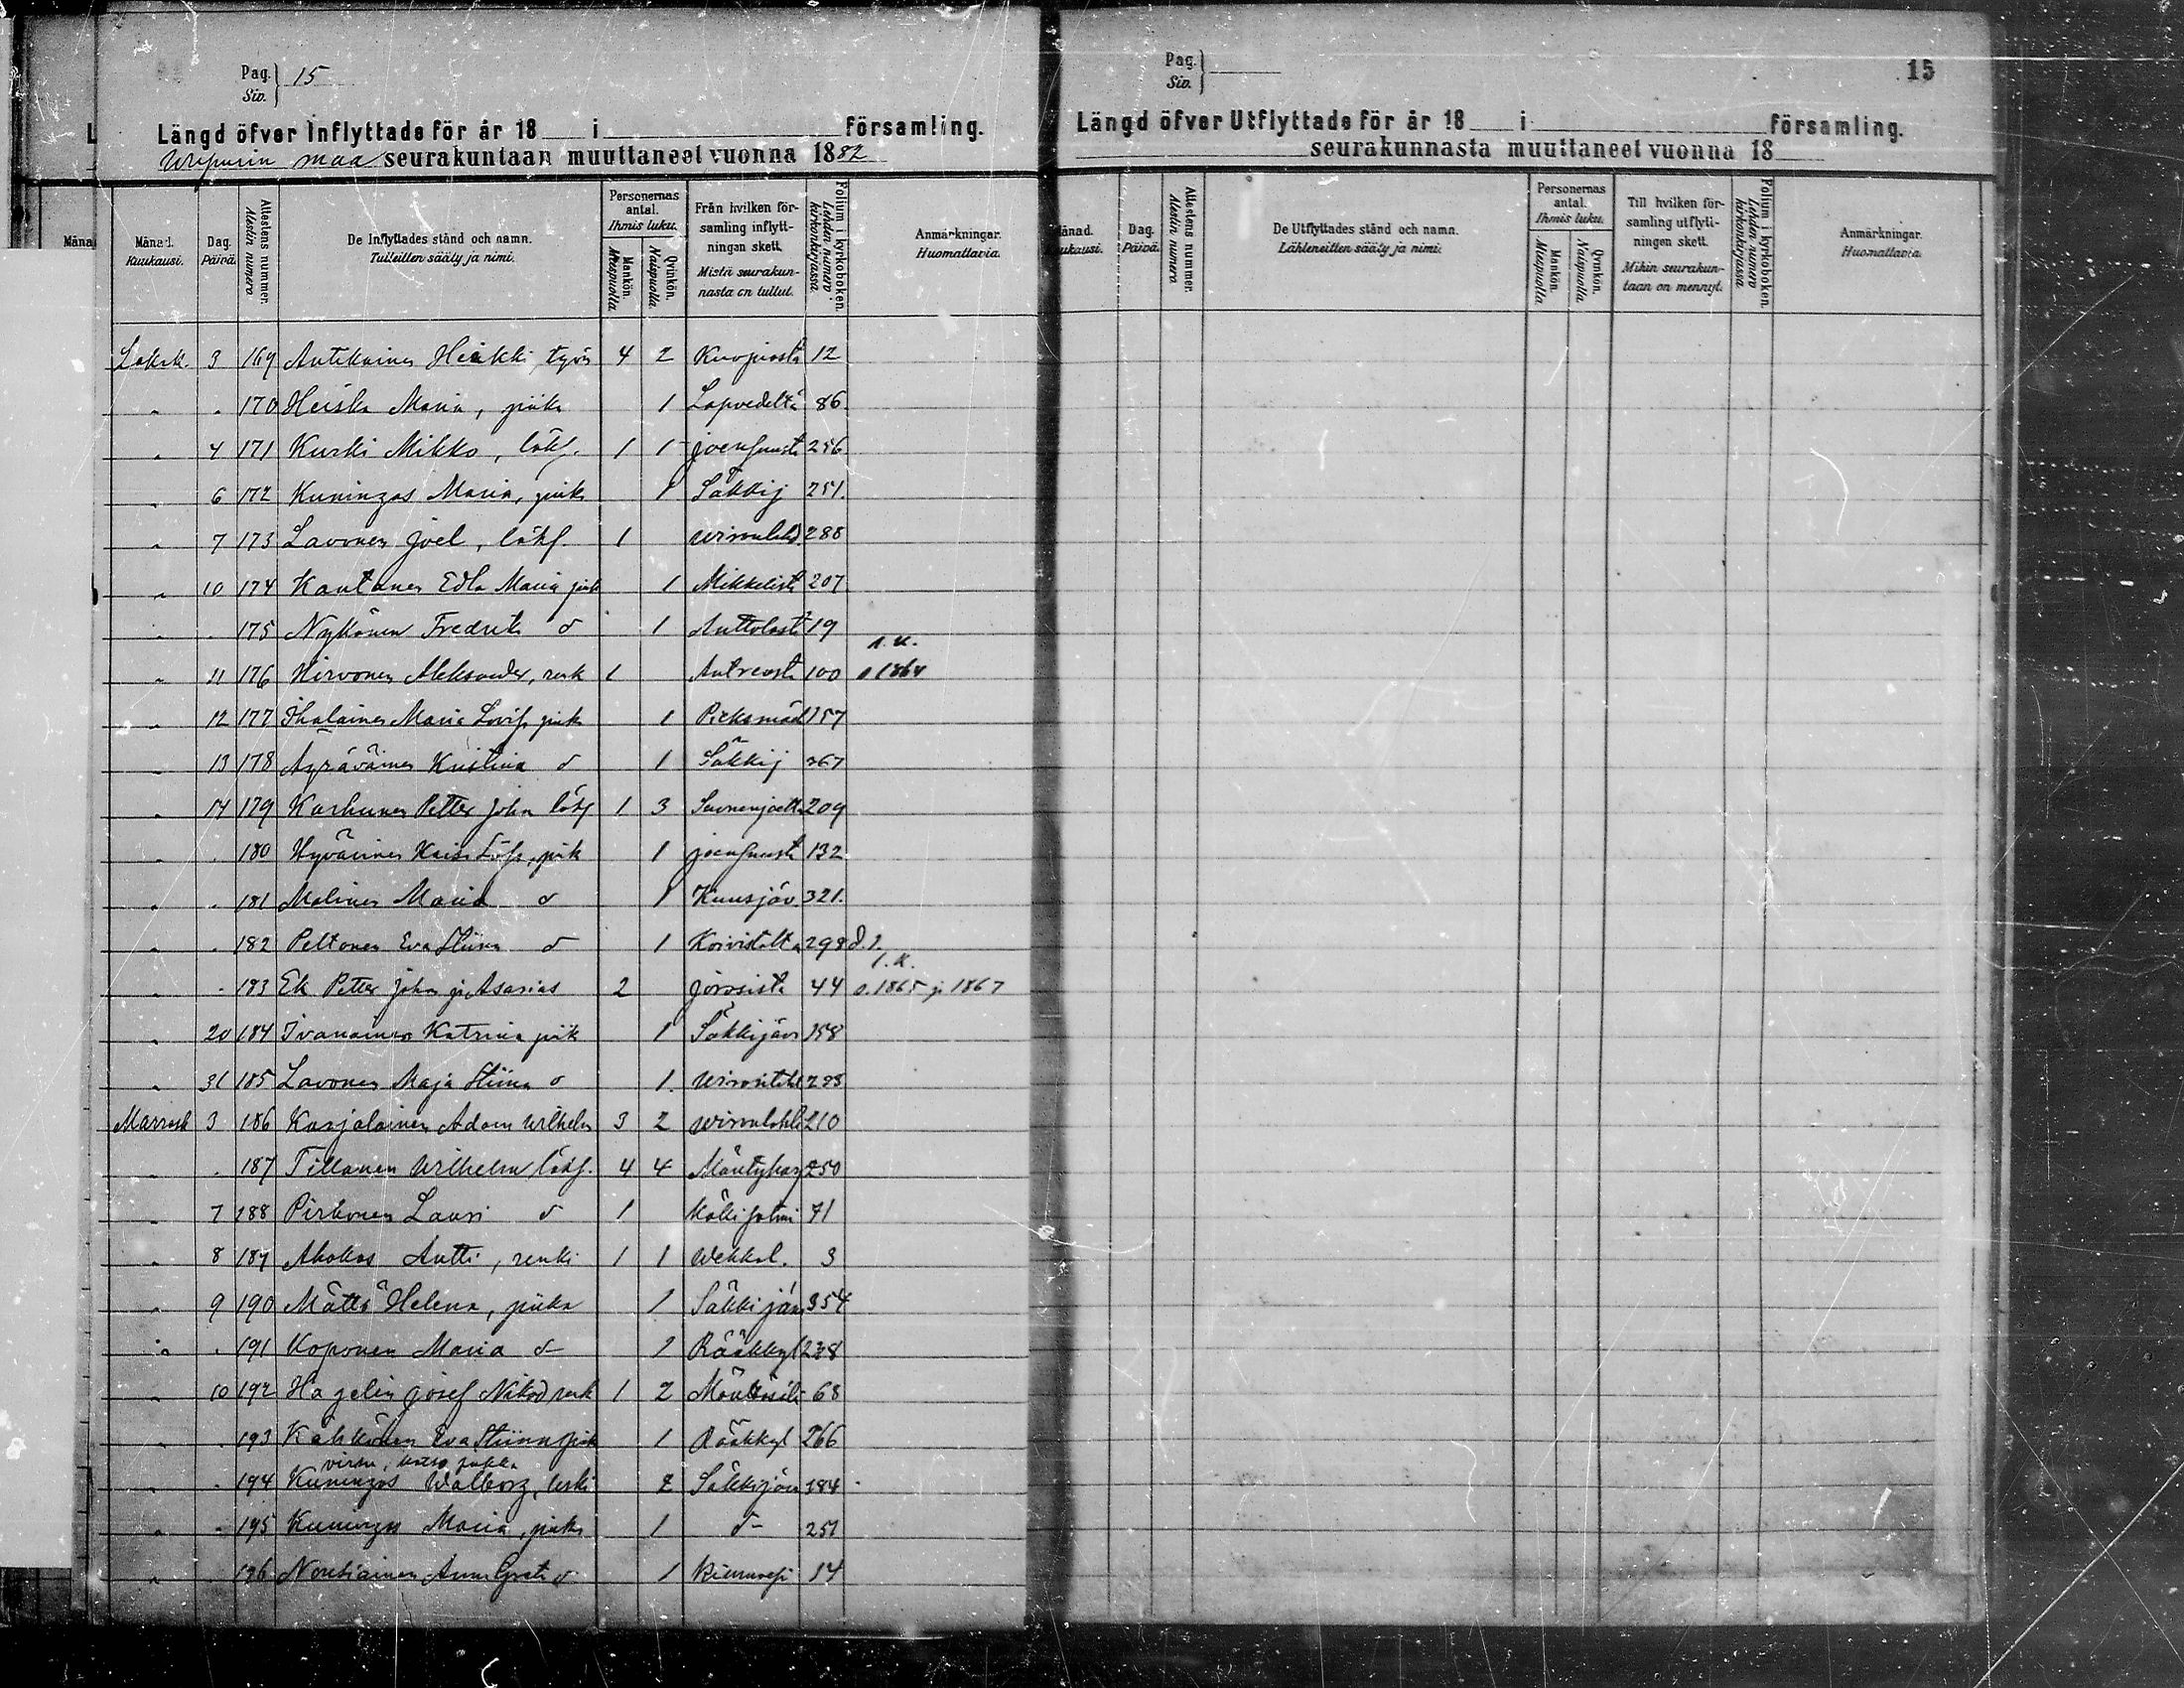 Pag. 15
Siv.
Längd öfver Inflyttade för år 18 i församling.
Wiipurin maa seurakuntaan muuttaneet vuonna 1882
Månad. Kuukausi.
Dag. Päivä.
Attestens nummer. Atestin numero
De Inflyttades stånd och namn. Tulleitten sääty ja nimi.
Personernas antal. Ihmis luku.
Mankön. Miespuolia
Qvinkön. Naispuolia.
Från hvilken församling inflyttningen skett. Mistä seurakunnasta on tullut.
Folium i kyrkoboken. Lehden numero kirkonkirjassa
Anmärkningar. Huomattavia.
Lokak. 3 169 Antikainen Heikki, työm 4 2 Kuopiosta 12
" . 170 Heiska Maria, piika 1 Lapvedeltä 86.
" 4 171 Kurki Mikko, lökf. 1 1 Joensuusta 256
" 6 172 Kuningas Maria, piika 1 Säkkij 251.
" 7 173 Lavonen Joel, lökf. 1 Wirmulahd. 288
" 10 174 Kantanen Edla Maria piik 1 Mikkelist 207
" . 175 Nykänen Fredrika d 1 Anttolast 19
" 11 176 Hirvonen Aleksander, renk 1 Antreasta 100 r. k. s 1864
" 12 177 Ihalainen Maria Lovisa piik 1 Pieksmäel 157
" 13 178 Äyräväinen Kristina d 1 Säkkij 367
" 14 179 Karhunen Petter Johan lökf 1 3 Suonenjoelta 209
" . 180 Hyvärinen Kaisa Sofia, piik 1 Joensuusta 132
" . 181 Malinen Maria d 1 Kuusjäv. 321.
" . 182 Peltonen Eva Stiina d 1 Koivistolta 298 d. 1.
" . 183 Ek Petter Johan ja Asarias 2 Joroisista 44 r. k. s. 1865 ja 1867
" 20 184 Ivanainen Katrina piik 1 Säkkijärv 158
" 31 185 Lavonen Maja Stiina d 1.
Marrask 3 186 Karjalainen Adam Wilhelm 3 2 Wirmulahd 210
" . 187 Tillanen Wilhelm lökf. 4 4 Mäntyharj 250
" 7 188 Pirhonen Lauri d 1 Käkisalmi 71
" 8 189 Ahokas Antti, renki 1 1 Wehkal. 3
" 9 190 Mättö Helena, piika 1 Säkkijärv 354
" . 191 Koponen Maria d 1 Rääkkyl 238
" 10 192 Hagelin Josef Nikod renk 1 2 68
" . 193 Kähkönen Eva Stiina piik 1 Rääkkyl 266
" . 194 Kuningas Walborg, leski 2 Säkkijärv 184
" . 195 Kuningas Maria, piika 1 d- 251
" . 196 Noutiainen Anna Greta d 1 Kiuruvesi 14
Pag.
Siv.
15
Längd öfver Utflyttade för år 18 i församling.
seurakunnasta muuttaneet vuonna 18
Månad. Kuukausi.
Dag. Päivä.
Attestens nummer. Atestin numero
De Utflyttades stånd och namn. Lähteneitten sääty ja nimi.
Personernas antal. Ihmis luku.
Mankön. Miespuolia
Qvinkön. Naispuolia.
Till hvilken församling utflyttningen skett. Mihin seurakuntaan on mennyt.
Folium i kyrkoboken. Lehden numero kirkonkirjassa
Anmärkningar. Huomattavia.